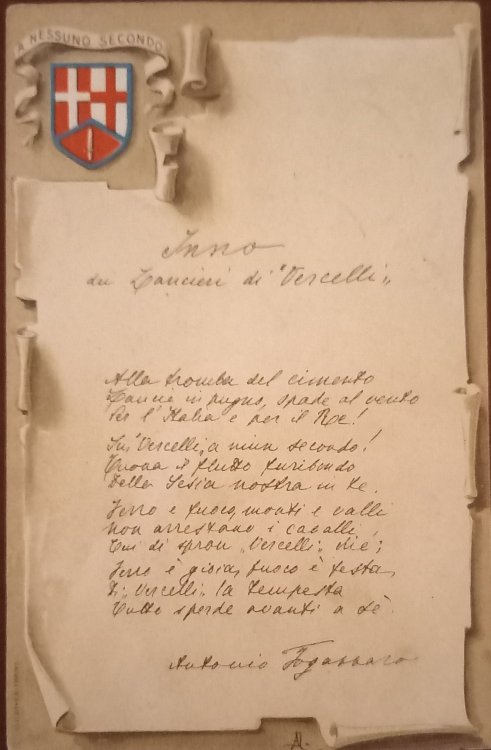 A NESSUNO SECONDO
Inno
dei Lancieri di "Vercelli"
Alla tromba del cimento
Lancia in pugno, spade al vento
Per l'Italia e per il Re!
Su, "Vercelli", a niun secondo!
Tuona il flutto furibondo
Della Sesia nostra in te.
Ferro e fuoco, monti e valli
non arrestano i cavalli
Cui di spron "Vercelli" diè;
Ferro è gioia, fuoco è festa,
Di "Vercelli" la tempesta
Tutto sperde avanti a sè.
Antonio Fogazzaro